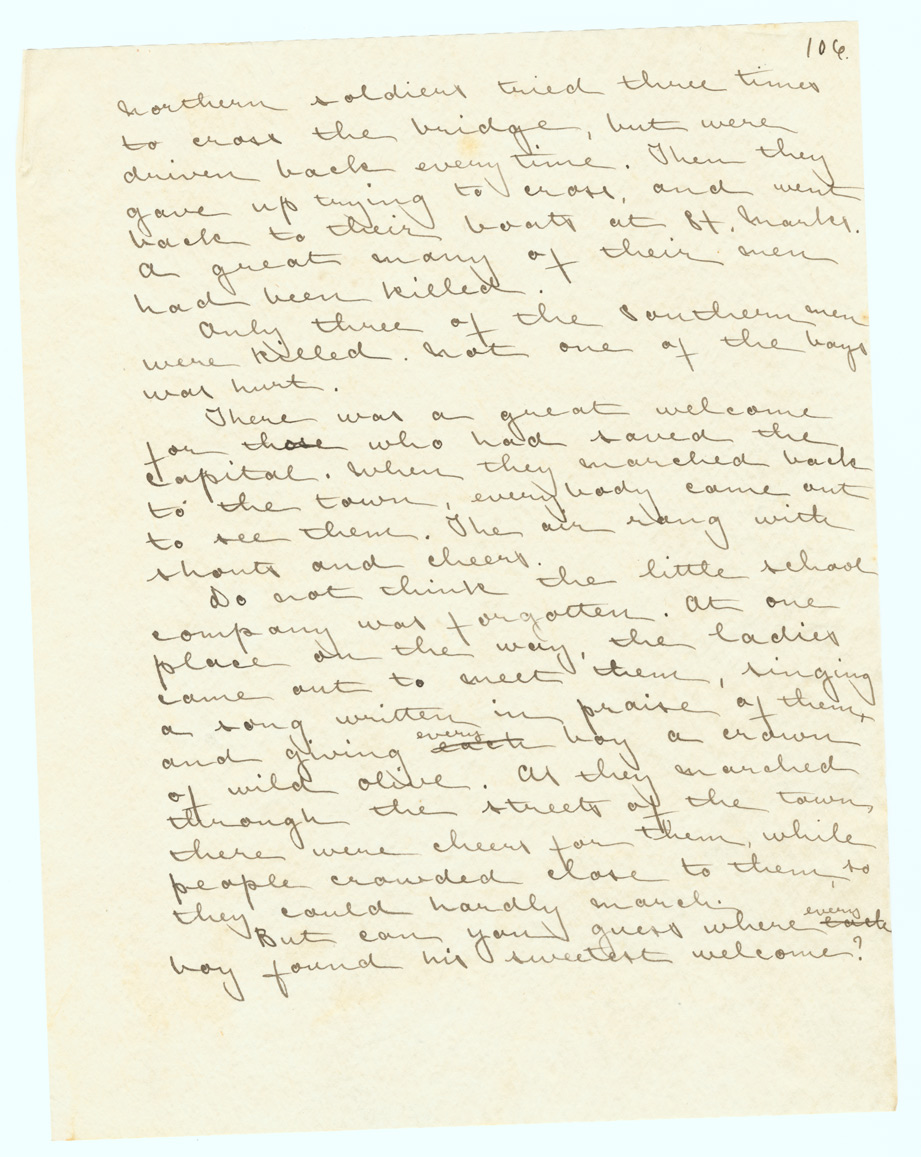 106.
Northern soldiers tried three times
to cross the bridge, but were
driven back every time. Then they
gave up trying to cross, and went
back to their boats at St. Marks.
A great many of their men
had been killed.
Only three of the Southern men
were killed. Not one of the boys
was hurt.
There was a great welcome
for those who had saved the
capital. When they marched back
to the town, everybody came out
to see them. The air rang with
shouts and cheers.
Do not think the little school
company was forgotten. At one
place on the way, the ladies
came out to meet them, singing
a song written in praise of them,
and giving each every boy a crown
of wild olive. As they marched
through the streets of the town,
there were cheers for them, while
people crowded close to them, so
they could hardly march.
But can you guess where each every
boy found his sweetest welcome?